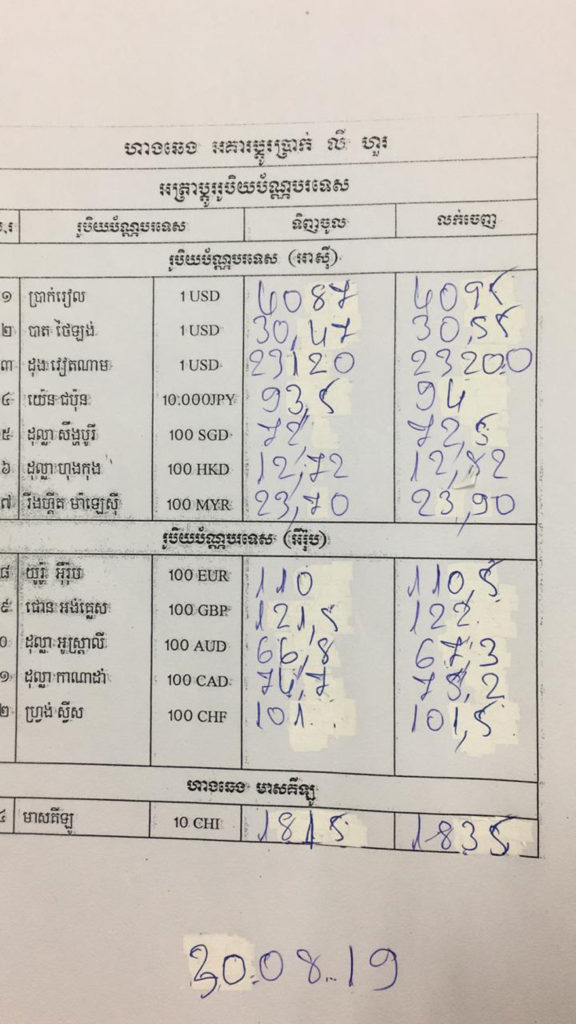 ហាងឆេង អគារប្តូរប្រាក់ លី ហួរ
អត្រាប្តូររូបិយប័ណ្ណបរទេស
រូបិយប័ណ្ណបរទេស ទិញចូល លក់ចេញ
រូបិយប័ណ្ណបរទេស (អាស៊ី)
១ ប្រាក់រៀល 1 USD 4087 4095
២ បាត ថៃឡង់ 1 USD 30,47 30,55
៣ ដុង វៀតណាម 1 USD 23120 23200
៤ យ៉េន ជប៉ុន 10.000JPY 93,5 94
៥ ដុល្លា សឹង្ហបូរី 100 SGD 72 72,5
៦ ដុល្លា ហុងកុង 100 HKD 12,72 12,82
៧ រីងហ្គីត ម៉ាឡេស៊ី 100 MYR 23,70 23,90
រូបិយប័ណ្ណបរទេស (អឺរ៉ុប)
៨ យូរ៉ូ អឺរ៉ុប 100 EUR 110 110,5
៩ ផោន អង់គ្លេស 100 GBP 121,5 122
០ ដុល្លា អូស្ត្រាលី 100 AUD 66,8 67,3
១ ដុល្លា កាណាដា 100 CAD 74,7 75,2
២ ហ្វ្រង់ ស្វីស 100 CHF 101 101,5
ហាងឆេង មាសគីឡូ
៤ មាសគីឡូ 10 CHI 1815 1835
30.08.19